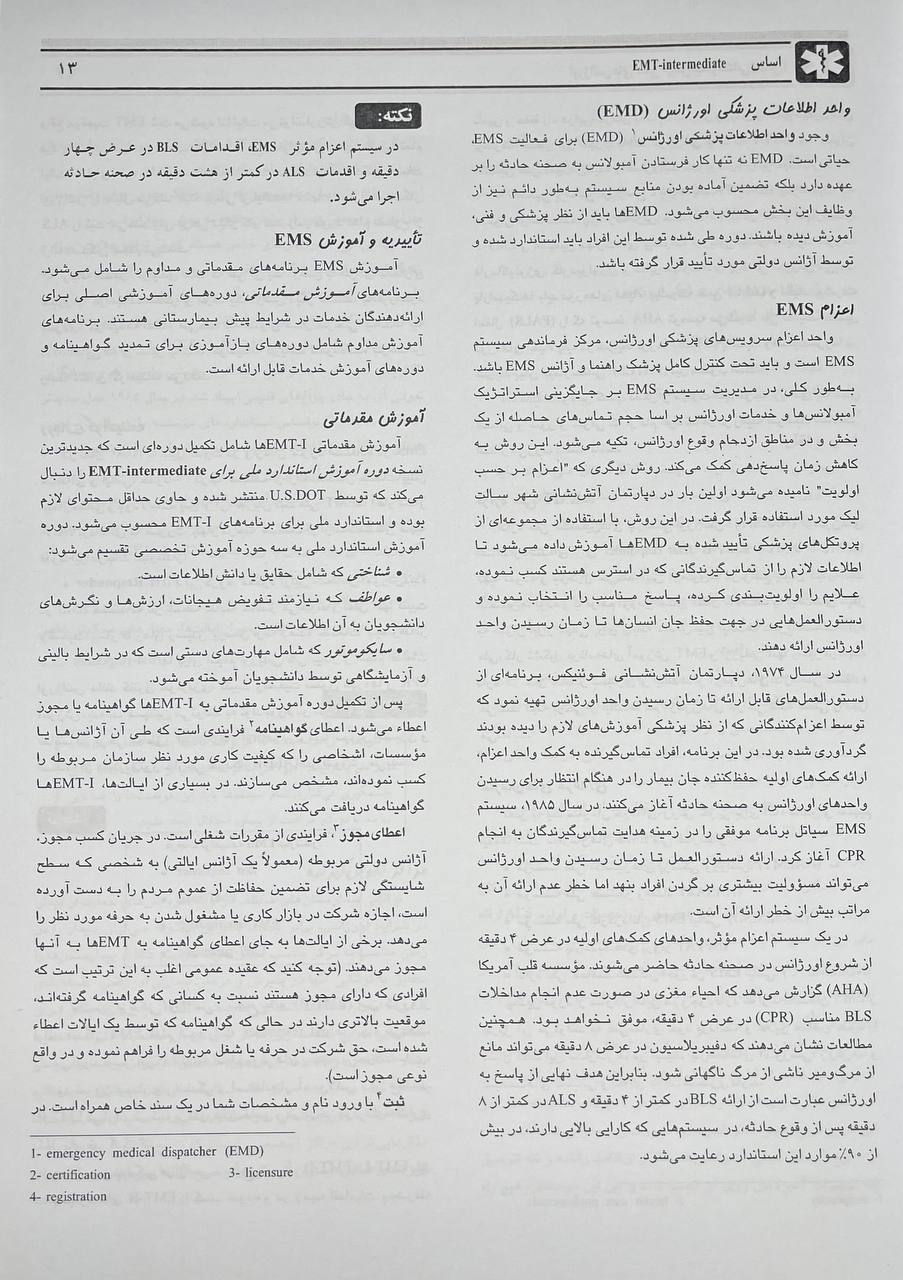 اساس EMT-intermediate
۱۳
واحد اطلاعات پزشکی اورژانس (EMD)
وجود واحد اطلاعات پزشکی اورژانس۱ (EMD) برای فعالیت EMS،
حیاتی است. EMD نه تنها کار فرستادن آمبولانس به صحنه حادثه را بر
عهده دارد بلکه تضمین آماده بودن منابع سیستم به‌طور دائم نیز از
وظایف این بخش محسوب می‌شود. EMDها باید از نظر پزشکی و فنی،
آموزش دیده باشند. دوره طی شده توسط این افراد باید استاندارد شده و
توسط آژانس دولتی مورد تأیید قرار گرفته باشد.
اعزام EMS
واحد اعزام سرویس‌های پزشکی اورژانس، مرکز فرماندهی سیستم
EMS است و باید تحت کنترل کامل پزشک راهنما و آژانس EMS باشد.
به‌طور کلی، در مدیریت سیستم EMS بر جایگزینی استراتژیک
آمبولانس‌ها و خدمات اورژانس بر اسا حجم تماس‌های حاصله از یک
بخش و در مناطق ازدحام وقوع اورژانس، تکیه می‌شود. این روش به
کاهش زمان پاسخ‌دهی کمک می‌کند. روش دیگری که "اعزام بر حسب
اولویت" نامیده می‌شود اولین بار در دپارتمان آتش‌نشانی شهر سالت
لیک مورد استفاده قرار گرفت. در این روش، با استفاده از مجموعه‌ای از
پروتکل‌های پزشکی تأیید شده به EMDها آموزش داده می‌شود تا
اطلاعات لازم را از تماس‌گیرندگانی که در استرس هستند کسب نموده،
علایم را اولویت‌بندی کرده، پاسخ مناسب را انتخاب نموده و
دستورالعمل‌هایی در جهت حفظ جان انسان‌ها تا زمان رسیدن واحد
اورژانس ارائه دهند.
در سال ۱۹۷۴، دپارتمان آتش‌نشانی فوئنیکس، برنامه‌ای از
دستورالعمل‌های قابل ارائه تا زمان رسیدن واحد اورژانس تهیه نمود که
توسط اعزام‌کنندگانی که از نظر پزشکی آموزش‌های لازم را دیده بودند
گردآوری شده بود. در این برنامه، افراد تماس‌گیرنده به کمک واحد اعزام،
ارائه کمک‌های اولیه حفظ‌کننده جان بیمار را در هنگام انتظار برای رسیدن
واحدهای اورژانس به صحنه حادثه آغاز می‌کنند. در سال ۱۹۸۵، سیستم
EMS سیاتل برنامه موفقی را در زمینه هدایت تماس‌گیرندگان به انجام
CPR آغاز کرد. ارائه دستورالعمل تا زمان رسیدن واحد اورژانس
می‌تواند مسؤولیت بیشتری بر گردن افراد بنهد اما خطر عدم ارائه آن به
مراتب بیش از خطر ارائه آن است.
در یک سیستم اعزام مؤثر، واحدهای کمک‌های اولیه در عرض ۴ دقیقه
از شروع اورژانس در صحنه حادثه حاضر می‌شوند. مؤسسه قلب آمریکا
(AHA) گزارش می‌دهد که احیاء مغزی در صورت عدم انجام مداخلات
BLS مناسب (CPR) در عرض ۴ دقیقه، موفق نخواهد بود. همچنین
مطالعات نشان می‌دهند که دفیبریلاسیون در عرض ۸ دقیقه می‌تواند مانع
از مرگ‌ومیر ناشی از مرگ ناگهانی شود. بنابراین هدف نهایی از پاسخ به
اورژانس عبارت است از ارائه BLS در کمتر از ۴ دقیقه و ALS در کمتر از ۸
دقیقه پس از وقوع حادثه، در سیستم‌هایی که کارایی بالایی دارند، در بیش
از ۹۰٪ موارد این استاندارد رعایت می‌شود.
نکته:
در سیستم اعزام مؤثر EMS، اقدامات BLS در عرض چهار
دقیقه و اقدمات ALS در کمتر از هشت دقیقه در صحنه حادثه
اجرا می‌شود.
تأییدیه و آموزش EMS
آموزش EMS برنامه‌های مقدماتی و مداوم را شامل می‌شود.
برنامه‌های آموزش مقدماتی، دوره‌های آموزشی اصلی برای
ارائه‌دهندگان خدمات در شرایط پیش بیمارستانی هستند. برنامه‌های
آموزش مداوم شامل دوره‌های بازآموزی برای تمدید گواهینامه و
دوره‌های آموزش خدمات قابل ارائه است.
آموزش مقدماتی
آموزش مقدماتی EMT-Iها شامل تکمیل دوره‌ای است که جدیدترین
نسخه دوره آموزش استاندارد ملی برای EMT-intermediate را دنبال
می‌کند که توسط U.S.DOT منتشر شده و حاوی حداقل محتوای لازم
بوده و استاندارد ملی برای برنامه‌های EMT-I محسوب می‌شود. دوره
آموزش استاندارد ملی به سه حوزه آموزش تخصصی تقسیم می‌شود:
• شناختی که شامل حقایق یا دانش اطلاعات است.
• عواطف که نیازمند تفویض هیجانات، ارزش‌ها و نگرش‌های
دانشجویان به آن اطلاعات است.
• سایکوموتور که شامل مهارت‌های دستی است که در شرایط بالینی
و آزمایشگاهی توسط دانشجویان آموخته می‌شود.
پس از تکمیل دوره آموزش مقدماتی به EMT-Iها گواهینامه یا مجوز
اعطاء می‌شود. اعطای گواهینامه۲ فرایندی است که طی آن آژانس‌ها یا
مؤسسات، اشخاصی را که کیفیت کاری مورد نظر سازمان مربوطه را
کسب نموده‌اند، مشخص می‌سازند. در بسیاری از ایالت‌ها، EMT-Iها
گواهینامه دریافت می‌کنند.
اعطای مجوز۳، فرایندی از مقررات شغلی است. در جریان کسب مجوز،
آژانس دولتی مربوطه (معمولاً یک آژانس ایالتی) به شخصی که سطح
شایستگی لازم برای تضمین حفاظت از عموم مردم را به دست آورده
است، اجازه شرکت در بازار کاری یا مشغول شدن به حرفه مورد نظر را
می‌دهد. برخی از ایالت‌ها به جای اعطای گواهینامه به EMTها به آنها
مجوز می‌دهند. (توجه کنید که عقیده عمومی اغلب به این ترتیب است که
افرادی که دارای مجوز هستند نسبت به کسانی که گواهینامه گرفته‌اند،
موقعیت بالاتری دارند در حالی که گواهینامه که توسط یک ایالات اعطاء
شده است، حق شرکت در حرفه یا شغل مربوطه را فراهم نموده و در واقع
نوعی مجوز است).
ثبت۴ با ورود نام و مشخصات شما در یک سند خاص همراه است. در
1- emergency medical dispatcher (EMD)
2- certification 3- licensure
4- registration